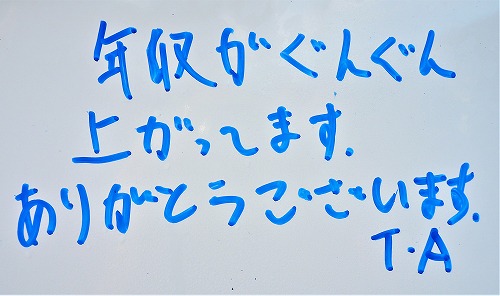 年収がぐんぐん
上がってます.
ありがとうございます.
T.A